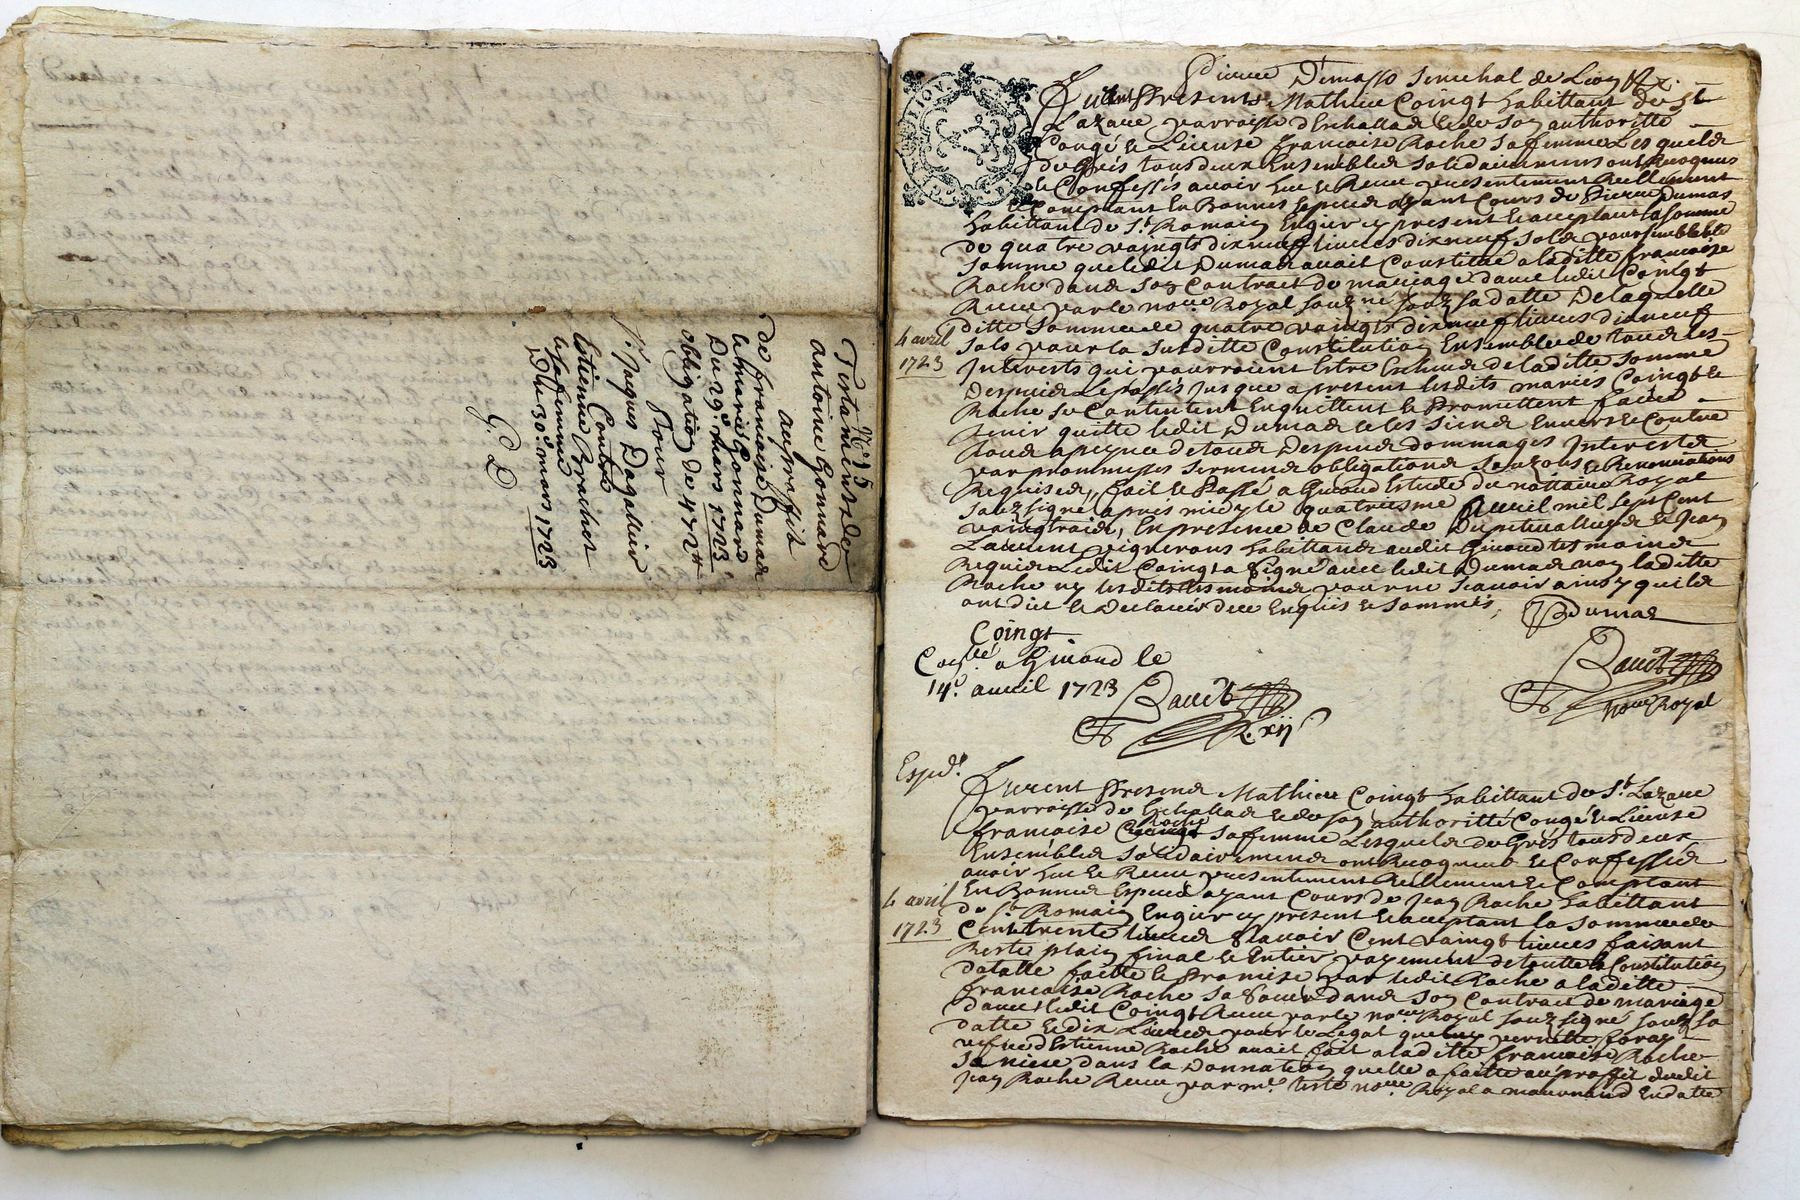 N.° 5
Testament de
antoine Gonnard
au proffit
de francoise Dumas
et marie Gonnard
Du 29.e mars 1723
obligation de 472 ₶
Pour
s.r Jaques Dagallier
Contre
Estienne Brachet
et sa femme
Du 30.e mars 1723
Pierre Dumasso senechal de Lion
Furent Presents Mathieu Coingt habittant de St
Lazare parroisse d'Eschallas et de son authoritté
Congé et License francoise Roche sa femme Lesquels
de Grés tous deux Ensembles solidairement ont Recognus
et Confessés avoir heu et Receu presentement Reellement
et Comptant En Bonnes Especes ayant Cours de Pierre Dumas
habittant de St Romain Engier cy present et acceptant la somme
de quatre vaingts dix neuf livres dix neuf sols pour semblable
somme que ledit Dumas avait Constitué a laditte francoise
Roche dans son Contract de mariage avec ledit Coingt
Receu par le no.re Royal souz.né souz sa datte De laquelle
ditte somme de quatre vaingts dix neuf livres dix neuf
4 avril
1723
sols pour la susditte Constitution Ensemble de tous les
Interests qui pourroient Estre Escheus de laditte somme
Despuis Le passés Jusque a present lesdits mariés Coingt et
Roche se Contentent En quittent et Promettent faire
tenir quitte ledit Dumas et les siens Envers et Contre
tous a peyne de tous Despens dommages Interests
par prommesses serments obligations souzons et Renonciations
Requises, fait et Passé a Givord Estude du nottaire Royal
souzsigné apres midy le quatriesme Avril mil sept cent
vaingt trois, En presence de Claude et Jean
Laurent vignerons habittants audit Givord tesmoins
Requis Ledit Coingt a signé avec ledit Dumas non laditte
Roche ny lesdits tesmoins pour ne scavoir ainsy quils
ont dit et Declaré de ce Enquis et sommés,
Dumas
Coingt
Con.llé a Givord le
14.e avril 1723
Baudt
R. xij s
Baudt
no.re Royal
Exped.é
Furent Presens Mathieu Coingt habittant de St Lazare
parroisse de Eschallas et de son authoritté Congé et License
francoise Roche sa femme Lesquels de Grés tous deux
Ensembles solidairement ont Recognus et Confessés
avoir heu et Receu presentement Reellement et Comptant
En Bonnes Especes ayant Cours de Jean Roche habittant
4 avril
1723
de St Romain Engier cy present et acceptant la somme de
Cent trente livres scavoir Cent vaingt livres faisant
Reste plain final et Entier payement de toutte la Constitution
dotalle faitte et Promise par ledit Roche a laditte
francoise Roche sa soeur dans son Contract de mariage
avec ledit Coingt Receu par le no.re Royal souzsigné souz sa
datte et dix Livres pour le Legat que Pernette foray
vefue d'Estienne Roche avait fait a laditte francoise Roche
sa niece dans la Donnation quelle a faitte au proffit dudit
Jean Roche Receu par m.e teste no.re Royal a mournand En datte